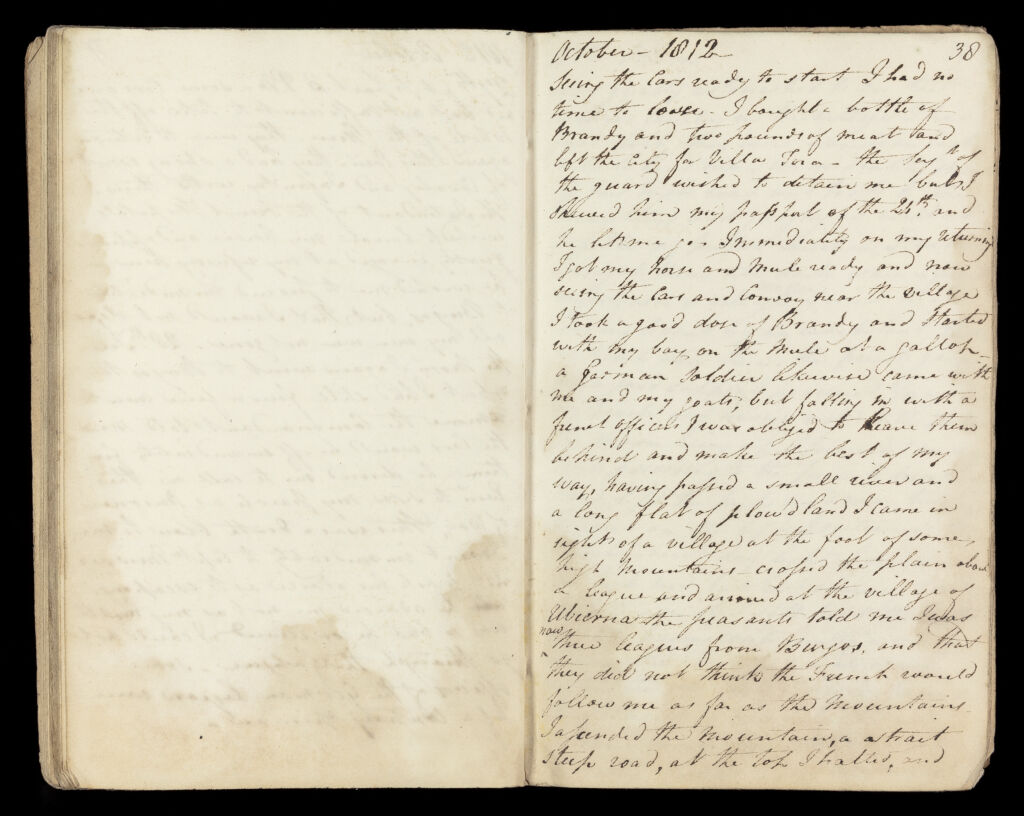 October - 1812 38
Seeing the Cars ready to start I had no
time to loose - I bought a bottle of
Brandy and two pounds of meat and
left the City for Villa Tora - the Serjt of
the guard wished to detain me but I
shewed him my passport of the 24th and
he let me go - Immediatly on my returning
I got my horse and Mule ready and now
seeing the Cars and Convoy near the village
I took a good dose of Brandy and started
with my boy on the Mule at a gallop -
a German soldier likewise came with
me and my goats, but falling in with a
French officer I was obliged to leave them
behind and make the best of my
way, having passed a small river and
a long flat of plow'd land I came in
sight of a village at the foot of some
high mountains - crossed the plain about
a league and arrived at the village of
Ubierna the peasants told me I was
now three leagues from Burgos, and that
they did not think the French would
follow me as far as the Mountains -
I ascended the Mountain, a strait
steep road, at the top I halted, and